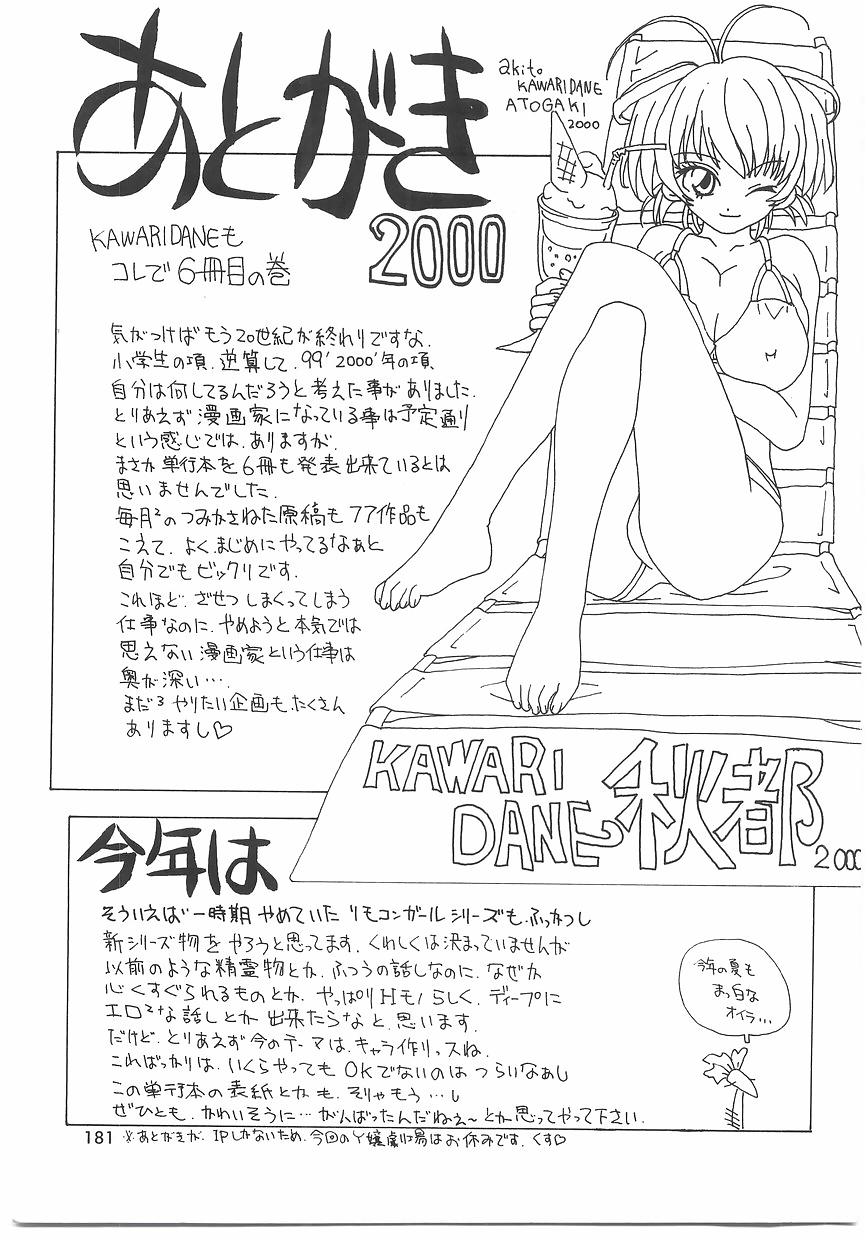 あとがき
2000
akito
KAWARIDANE
ATOGAKI
2000
KAWARIDANEも
コレで6冊目の巻
気がつけばもう20世紀が終わりですな.
小学生の項、逆算して、99'2000'年の項、
自分は何してるんだろうと考えた事がありました.
とりあえず漫画家になっている事は予定通り
という感じでは、ありますが、
まさか単行本を6冊も発表出来ているとは
思いませんでした.
毎月²のつみかさねた原稿も77作品も
こえて、よくまじめにやってるなぁと
自分でもビックリです.
これほど、ざせつしまくってしまう
仕事なのに、やめようと本気では
思えない漫画家という仕事は
奥が深い….
まだ3やりたい企画もたくさん
ありますし♡
KAWARI
DANE
秋都
2000
今年は
そういえば一時期やめていたリモコンガールシリーズも、ふっかつし
新シリーズ物をやろうと思ってます、くわしくは決まっていませんが
以前のような精霊物とか、ふつうの話しなのに、なぜか
心くすぐられるものとか、やっぱりHモノらしく、ディープに
エロ²な話しとか出来たらなと、思います.
だけど、とりあえず今のテーマは、キャラ作りッスね.
こればっかりは、いくらやってもOKでないのはつらいなぁし
この単行本の表紙とかも、そりゃもう…し
ぜひとも、かわいそうに…がんばったんだねぇ~とか思ってやって下さい.
今年の夏も
まっ白な
オイラ…
181
※あとがきが、1Pしかないため、今回のY嬢劇場はお休みです、くす♡